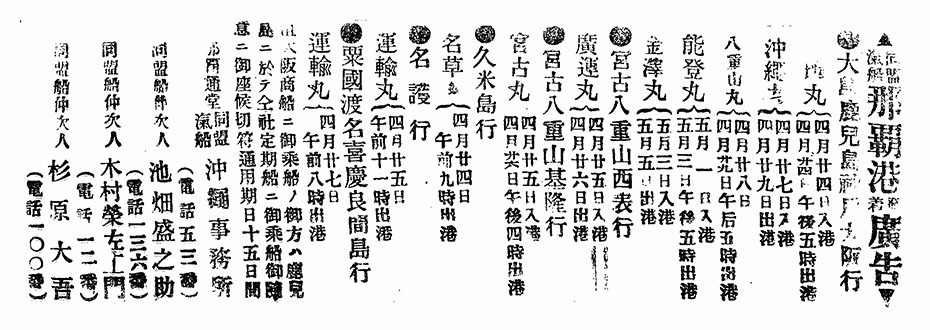 ▲同盟汽船那覇港發着廣告▼
●大島鹿兒島神戸大阪行
丸 四月廿四日入港
四月廿四日午後五時出港
沖繩丸 四月廿七日入港
四月廿九日出港
八重山丸 四月廿八日
四月廿九日午后五時出港
能登丸 五月一日入港
五月三日午後五時出港
金澤丸 五月三日入港
五月五日出港
●宮古八重山西表行
廣運丸 四月廿五日入港
四月廿六日出港
●宮古八重山基隆行
宮古丸 四月廿五日入港
四月廿六日午後四時出港
●久米島行
名草丸 四月廿四日
午前九時出港
●名護行
運輸丸 四月廿五日
午前十一時出港
●粟國渡名喜慶良間島行
運輸丸 四月廿七日
午前八時出港
大阪商船ニ御乘船ノ御方ハ鹿兒
島ニ於テ仝社定期船ニ御乘船御隨
意ニ御座候切符通用期日十五日間
那覇通堂 同盟汽船 沖繩事務所
(電話五三番)
同盟船仲次人 池畑盛之助
(電話一三六番)
同盟船仲次人 木村榮左工門
(電話一二番)
同盟船仲次人 杉原大吾
(電話一〇〇番)